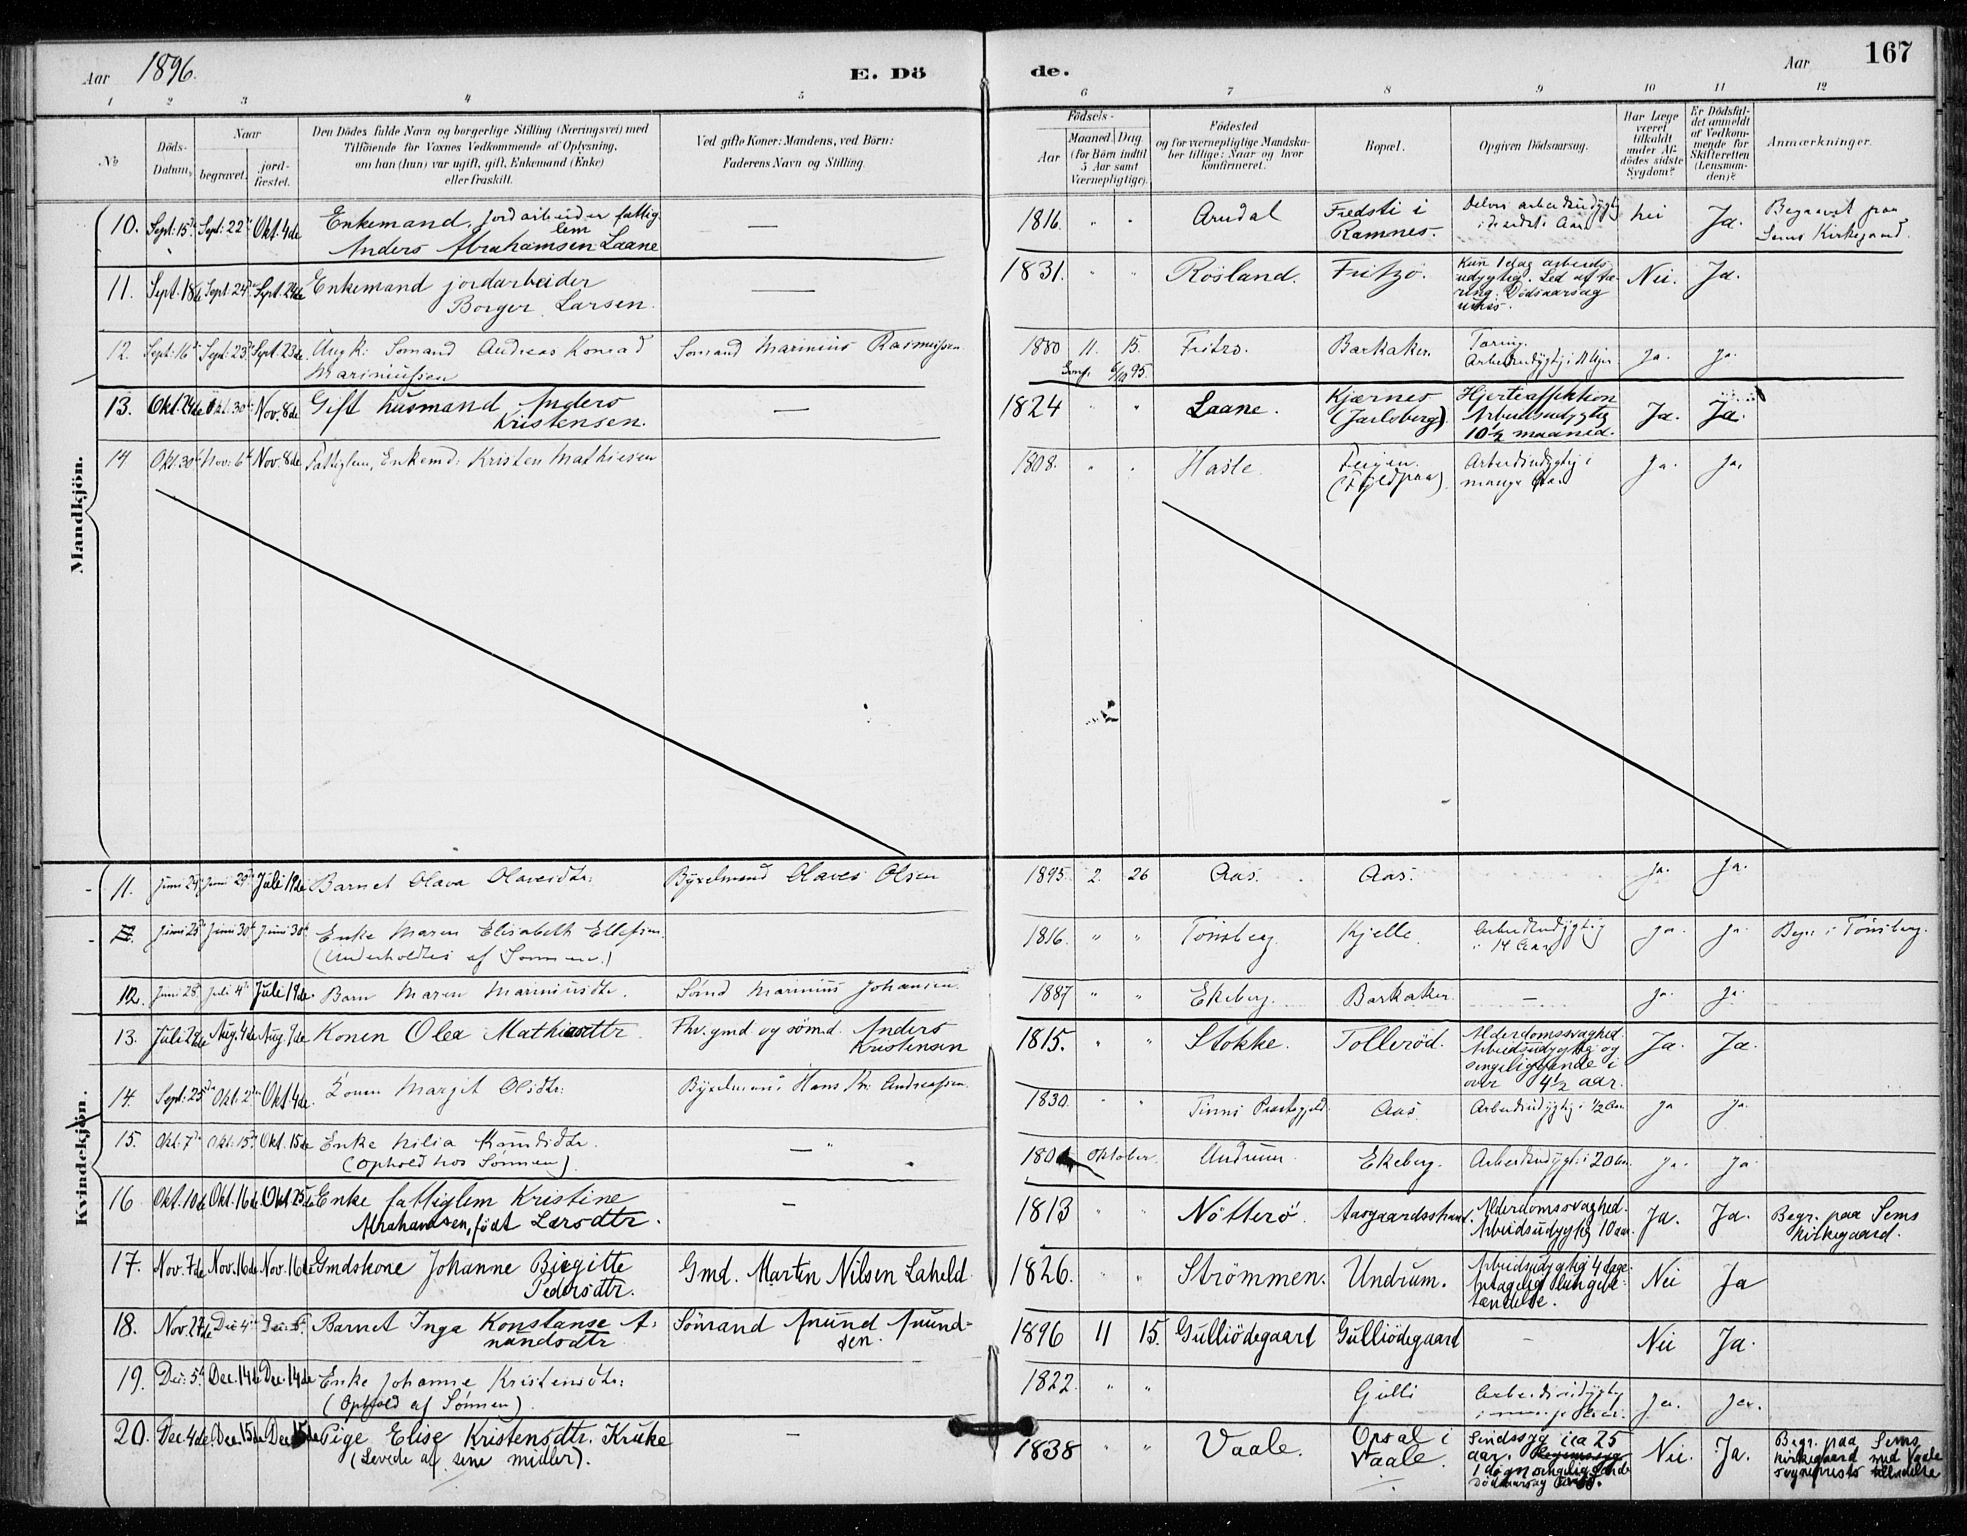 Aar 1896.
E. Dö
de.
Aar
167
1 2 3 4 5 6 7 8 9 10 11 12
No
Döds-Datum.
Naar
begravet. jord-fæstet.
Den Dödes fulde Navn og borgerlige Stilling (Næringsvei) med
Tilföiende for Voxnes Vedkommende af Oplysning,
om han (hun) var ugift, gift, Enkemand (Enke)
eller fraskilt.
Ved gifte Koner: Mandens, ved Börn:
Faderens Navn og Stilling.
Födsels-
Aar Maaned Dag
(for Börn indtil
5 Aar samt
Værnepligtige).
Födested
og for værnepligtige Mandska-
ber tillige: Naar og hvor
konfirmeret.
Bopæl.
Opgiven Dödsaarsag.
Har Læge
været
tilkaldt
under Af-
dödes sidste
Sygdom?
Er Dödsfal-
det anmeldt
af Vedkom-
mende for
Skifteretten
(Lensman-
den)?
Anmærkninger.
Mandkjön.
10. Sept: 15de Sept: 22de Okt. 4de Enkemand, jordarbeider fattig
lem
Anders Abrahamsen Laane — 1816. " " Arndal Fredsti i
Ramnes. arbeidsudygtig
Nei Ja. Begravet paa
Sems Kirkegaard.
11. Sept. 18de Sept. 24de Sept. 24de Enkemand jordarbeider
Borger Larsen. — 1831. " " Rosland. Fritzö. Kun 1 dag arbeids-
udygtig. Led af tæ-
ring. Dödsaarsag
ukjs. Nei. Ja.
12. Sept: 16de Sept: 23de Sept. 23de Ungk: Sömand Andreas Konrad
Mariniussen Sömand Marinius Rasmussen 1880 11. 15. Fritzö. Barkaker. Tæring.
Arbeidsudygtig i Ja. Ja.
13. Okt. 24de Okt. 30te Nov. 8de Gift husmand Anders
Kristensen. — 1824 " " Laane. Kjærnes
(Jarlsberg). Hjerteaffektion
Arbeidsudygtig
10½ maaned. Ja. Ja.
14 Okt. 30te Nov: 6te Nov. 8de Fattiglem, Enkemd: Kristen Mathiesen 1808. " " Hasle. Feigen. Arbeidsudygtig i
mange Aar Ja. Ja.
Kvindekjön.
11. Juni 24de Juni 29de Juli 19de Barnet Olava Olavesdtr: Byxelmand Olaves Olsen 1895. 2. 26 Aas. Aas. Ja. Ja.
Juni 25de Juni 30te Juni 30te Enke Maren Elisabeth Ellefsen.
(Underholdtes af Sönnen.) 1816. " " Tönsberg Kjelle. Arbeidsudygtig
i 14 Aar Ja. Ja. Begr. i Tönsberg.
12. Juni 28de Juli 4de Juli 19de. Barn Maren Mariniusdtr. Sömd Marinius Johansen. 1887 " " Ekeberg. Barkaker. — Ja. Ja.
13. Juli 29de Aug. 4de Aug. 7de Konen Olea Mathiasdtr. Fhv. gmd og sömd. Anders
Kristensen 1815. " " Stokke. Tolleröd. Alderdomssvaghed.
Arbeidsudygtig og
sengiliggende i
over 4½ aar. Ja. Ja.
14. Sept: 25de Okt: 2den Okt. 4de. Konen Margit Olsdtr: Byxelmand Hans Kr. Andreassen. 1830. " " Tinns Præstegjeld. Aas Arbeidsudygtig i ½ Aar Ja Ja.
15. Okt: 7de Okt: 15de Okt. 15de Enke Knudsdtr.
(Ophold hos Sönnen). — Oktober. Undrum Ekeberg. Arbeidsudygt. i 20 Aar. Ja. Ja
16 Okt. 10de Okt. 16de Okt. 25de Enke fattiglem Kristine
Abrahamsen, födt Larsdtr. — 1813 " " Nötterö. Aasgaardsstrand. Alderdomssvaghed.
Arbeidsudygtig 10 aar. Ja. Ja. Begr. paa Sems
kirkegaard.
17. Nov. 7de Nov. 16de Nov. 16de Gmdskone Johanne Birgitte
Pedersdtr. Gmd. Martin Nilsen Laheld. 1826. " " Strömmen. Undrum. Arbeidsudygtig 4 dage.
Antagelig lungebe-
tændelse. Nei Ja
18. Nov. 27de Dec: 4de Dec: 5te Barnet Inga Konstanse A-
nundsdtr Sömand Anund Anund-
sen. 1896 11 15. Gulliödegaard Gulliödegaard — Nei Ja.
19. Dec: 5te Dec. 14de Dec. 14de Enke Johanne Kristensdtr:
(Ophold af Sönnen). 1822. " " Gulli Arbeidsudygtig
Ja. Ja.
20. Dec. 4de. Dec. 15de Dec. 15de Pige Elise Kristensdtr. Kruke
(Levede af sine midler). — 1838 " " Vaale. Opsal i
Vaale. Sindssyg i ca 25
aar.
1 dögn sengeliggende
Dödsaarsag Nei. Ja. Begr. paa Sems
kirkegaard med Vaale
sogneprests tilladelse